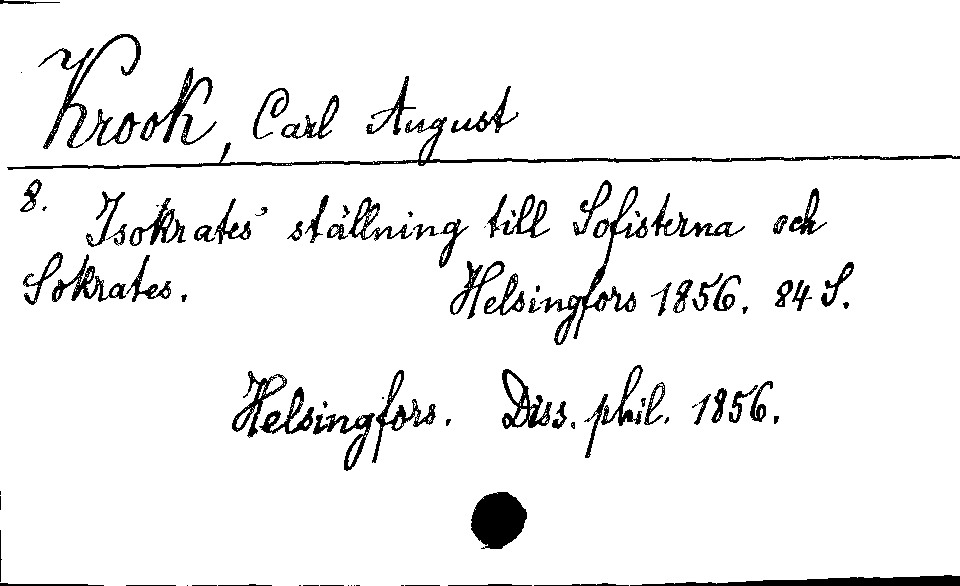 Krook, Carl August
8. Isokrates' ställning till Sofisterna och
Sokrates. Helsingfors 1856. 84 S.
Helsingfors. Diss. phil. 1856.